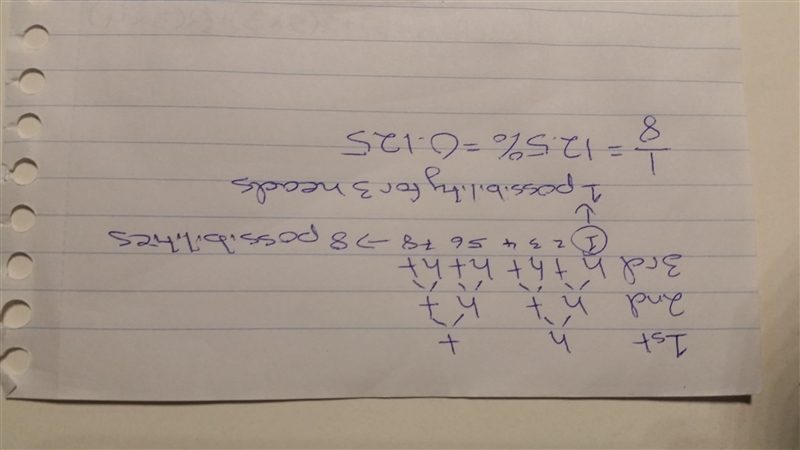 1st h t
2nd h t h t
3rd h t h t h t h t
1 2 3 4 5 6 7 8 → 8 possibilities
1 possibility for 3 heads
1/8 = 12.5% = 0.125